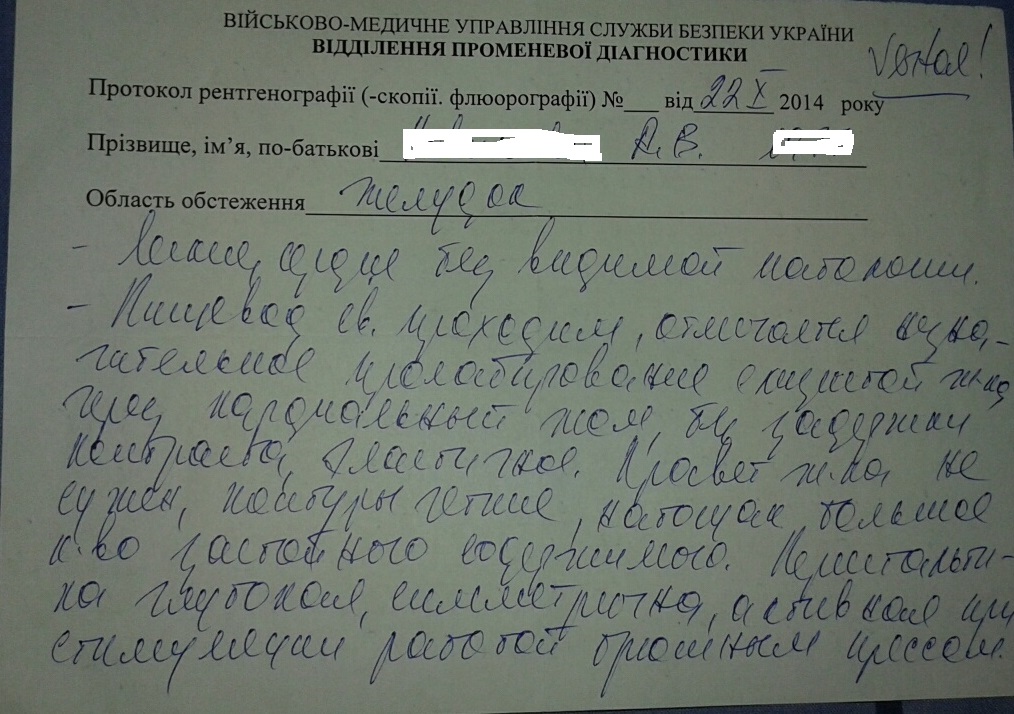 ВІЙСЬКОВО-МЕДИЧНЕ УПРАВЛІННЯ СЛУЖБИ БЕЗПЕКИ УКРАЇНИ
ВІДДІЛЕННЯ ПРОМЕНЕВОЇ ДІАГНОСТИКИ
Протокол рентгенографії (-скопії. флюорографії) №___ від 22 X 2014 року
Прізвище, ім’я, по-батькові А. В.
Область обстеження желудок
- Легкие, сердце без видимой патологии.
- Пищевод св. проходим, отмечается незна-
чительное пролабирование слизистой ж-ка
через кардиальный жом, без задержки
контраста, эластичное. Просвет ж-ка не
сужен, контуры четкие, натощак большое
к-во застойного содержимого. Перистальти-
ка глубокая, симметрична, активная при
стимуляции работой брюшным прессом.